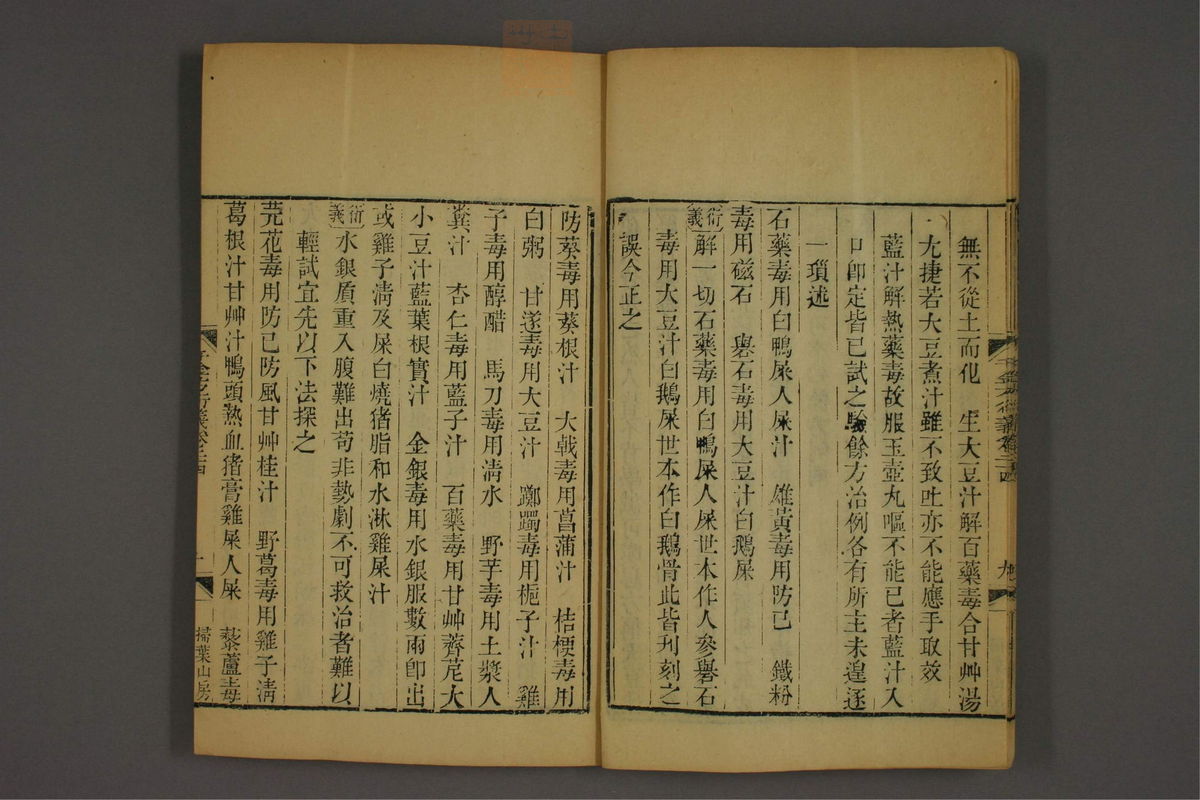 無不從土而化　生大豆汁解百藥毒合甘艸湯
尢捷若大豆煮汁雖不致吐亦不能應手取效
藍汁解熱藥毒故服玉壺丸嘔不能已者藍汁入
口卽定皆已試之驗餘方治例各有所主未遑逐
一瑣述
石藥毒用白鴨屎人屎汁　雄黃毒用防己　鐵粉
毒用磁石　礜石毒用大豆汁白鵝屎
衍義　解一切石藥毒用白鴨屎人屎世本作人參礜石
毒用大豆汁白鵝屎世本作白鵝骨此皆刋刻之
誤今正之
防葵毒用葵根汁　大戟毒用菖蒲汁　桔梗毒用
白粥　甘遂毒用大豆汁　躑躅毒用梔子汁　雞
子毒用醇醋　馬刀毒用淸水　野芋毒用土漿人
糞汁　杏仁毒用藍子汁　百藥毒用甘艸薺苨大
小豆汁藍葉根實汁　金銀毒用水銀服數兩卽出
或雞子淸及屎白燒猪脂和水淋雞屎汁
衍義　水銀質重入腹難出苟非勢劇不可救治者難以
輕試宜先以下法探之
芫花毒用防已防風甘艸桂汁　野葛毒用雞子淸
葛根汁甘艸汁鴨頭熱血猪膏雞屎人屎　藜蘆毒
掃葉山房